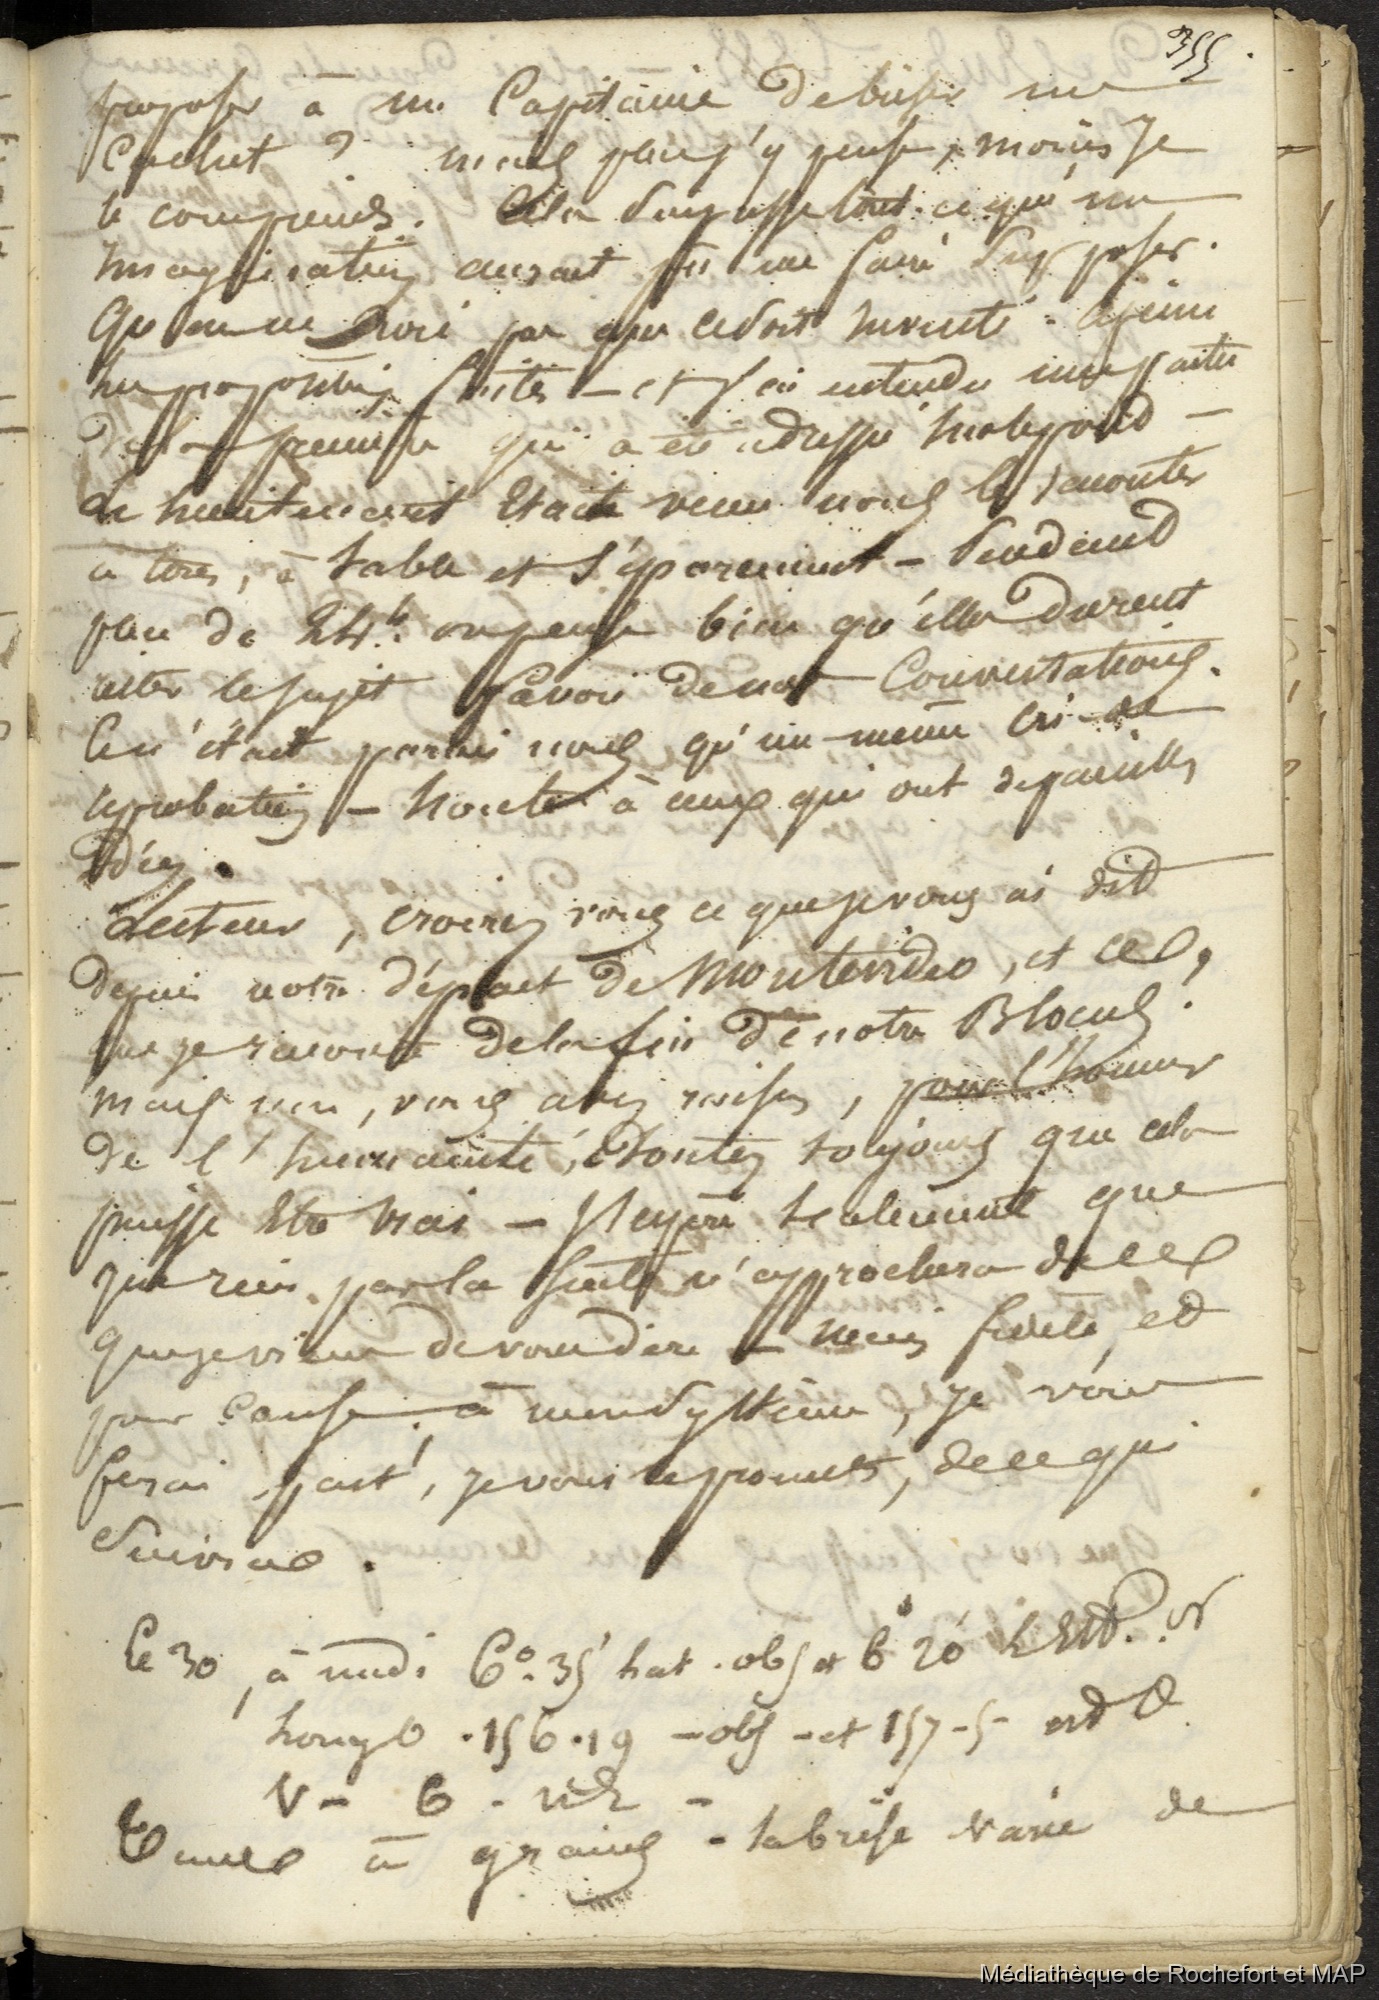 355.
proposer à un Capitaine de briser un
Cachet ? mais plus j'y pense, moins Je
le comprends. Cela surpasse tout ce que mon
Imagination aurait pu me faire supposer.
Qu'on ne croie pas que ce soit inventé.
proposition faite — et j'ai entendu une partie
de la première qui a été adressée
Le lieutenant était venu nous la raconter
à tous, à table et séparément — Pendant
plus de 24 h. on pense bien qu'elle durent
être le sujet favori de nos Conversations.
Ce n'était parmi nous qu'un même cri de
réprobation — honte à ceux qui ont de pareilles
Idées.
Lecteur, croirez vous ce que je vous ai dit
depuis notre départ de Montevideo, et ce
que je raconte de la fin de notre Blocus.
mais non, vous avez raison, pour l'honneur
de l'humanité, doutez toujours que cela
puisse être vrai — J'espère seulement que
que rien par la suite n'approchera de ce
que je viens de vous dire — mais fidèle, et
pour cause, à mon système, je vous
ferai part, je vous le promets, de ce qui
suivra.
Le 30, à midi 6° 35' lat. obs et 6° 20' Est. or
Longit. 156.19 — obs — et 157-5- est
V — 6 —
Temps à grains — la brise varie de
Médiathèque de Rochefort et MAP